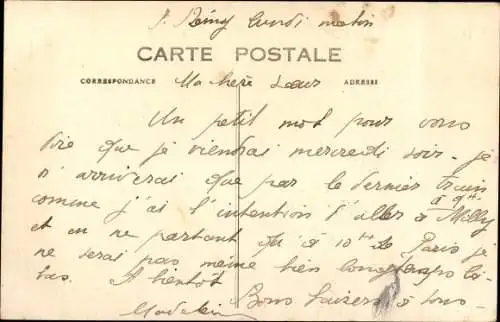 S. Rémy lundi matin
CARTE POSTALE
CORRESPONDANCE
Ma chère Sœur
ADRESSE
Un petit mot pour vous
dire que je viendrai mercredi soir. je
n'arriverai que par le dernier train
à 9H
comme j'ai l'intention d'aller à Milly
et en ne partant qu'à 10H de Paris je
ne serai pas même bien longtemps là-
bas. A bientôt
Bons baisers à tous